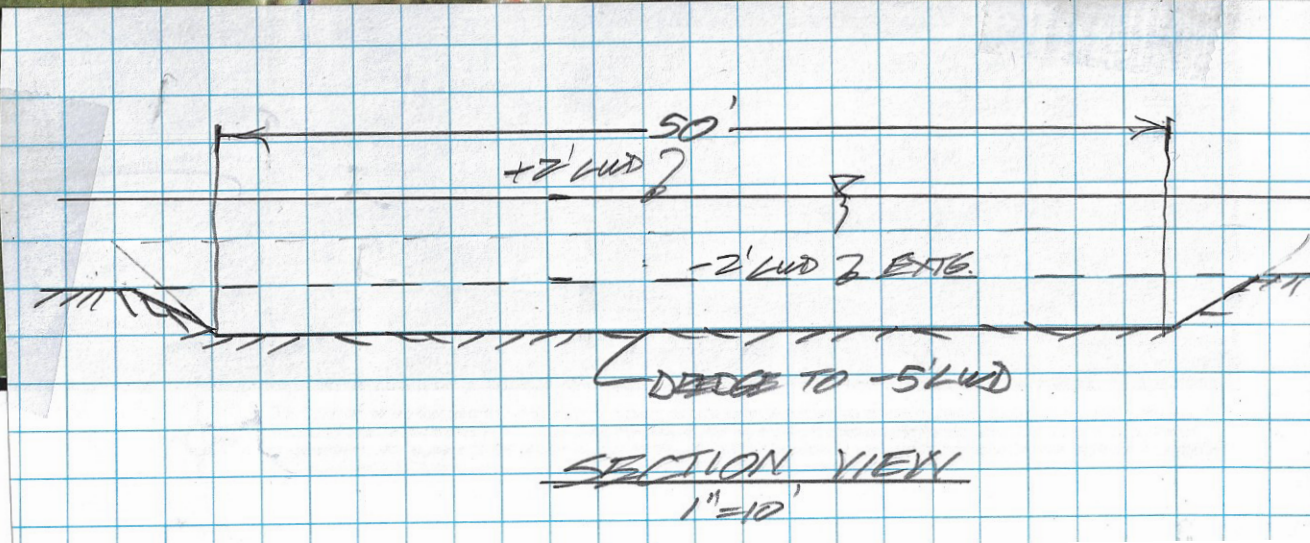 50'
+2' LWD
-2' LWD EXTG.
DREDGE TO -5' LWD
SECTION VIEW
1"=10'